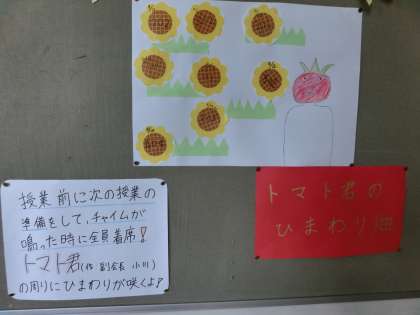 授業前に次の授業の
準備をして、チャイムが
鳴った時に全員着席!
トマト君(作 副会長 小川)
の周りにひまわりが咲くよ♪
トマト君の
ひまわり畑